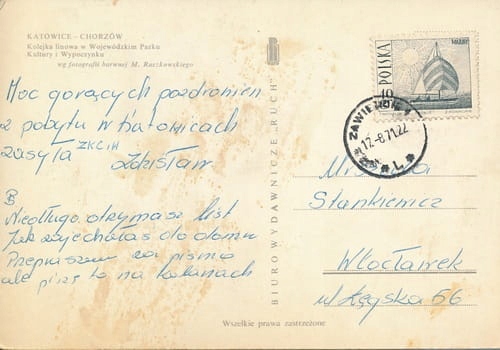 KATOWICE - CHORZÓW
Kolejka linowa w Wojewódzkim Parku
Kultury i Wypoczynku
wg fotografii barwnej M. Raczkowskiego
Moc gorących pozdrowień
z pobytu w Katowicach
zasyła ZKCiH
Zdzisław
Niedługo otrzymasz list
Jak zajechałaś do domu
Przepraszam za pismo
ale piszę to na kolanach
BIURO WYDAWNICZE „RUCH"
POLSKA
ZAWIERCIE 1
17.-8.71.22
Stankiewicz
Włocławek
ul Łęgska 56
Wszelkie prawa zastrzeżone